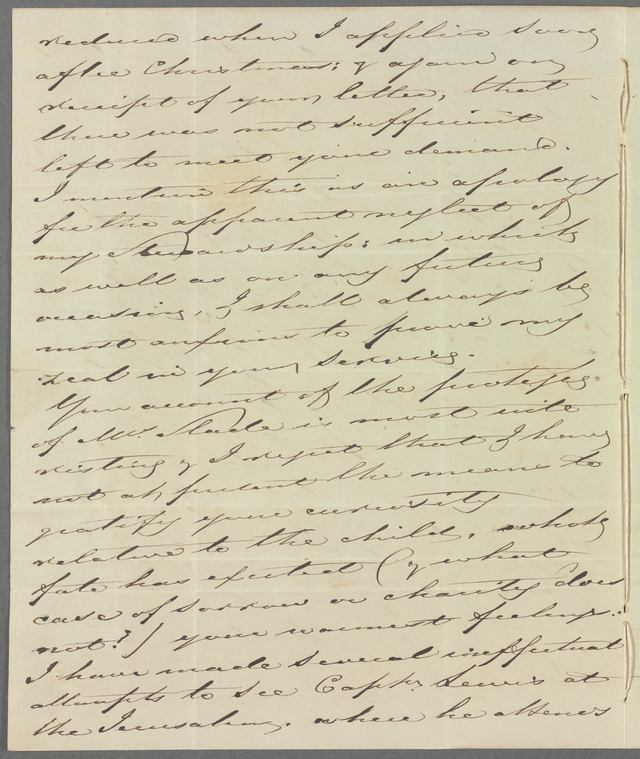 reduced when I applied soon
after Christmas; & again on
receipt of your letter, that
there was not sufficient
left to meet your demand.
I mention this as an apology
for the apparent neglect of
my Stewardship; in which
as well as on any future
occasion, I shall always be
most anxious to prove my
zeal in your service.
Your account of the protegé
of Mrs. Slade is most inte
resting & I regret that I have
not at present the means to
gratify your curiosity
relative to the child, whose
fate has excited (& what
case of sorrow or charity does
not?) your warmest feelings.
I have made several ineffectual
attempts to see Captn. Lewis at
the Jerusalem, where he attends